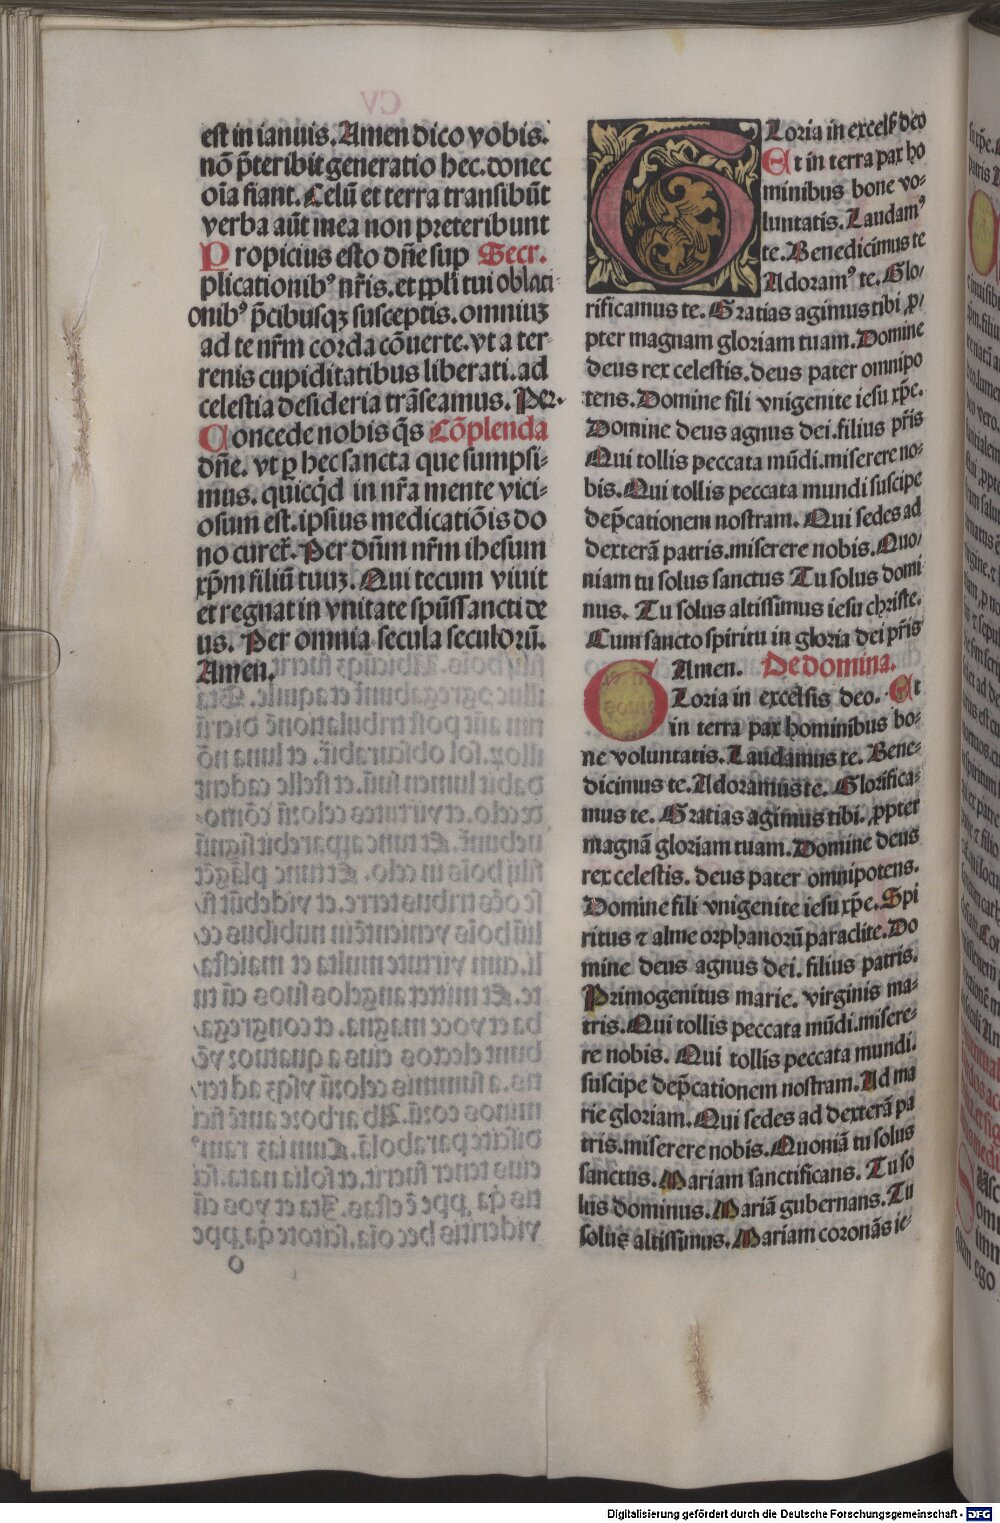 est in ianuis. Amen dico vobis.
nō p̄teribit generatio hec. donec
oīa fiant. Celū et terra transibūt
verba aūt mea non preteribunt
Propicius esto dn̄e sup Secr.
plicationibꝰ nr̄is. et ppl̄i tui oblati
onibꝰ p̄cibusqꝫ susceptis. omniuꝫ
ad te nr̄m corda cōuerte. vt a ter-
renis cupiditatibus liberati. ad
celestia desideria trāseamus. Per.
Concede nobis q̄s Cōplenda
dn̄e. vt ꝑ hec sancta que sumpsi-
mus. quicq̇d in nr̄a mente vici-
osum est. ipsius medicatiōis do
no curet̄. Per dn̄m nr̄m ihesum
xp̄m filiū tuuꝫ. Qui tecum viuit
et regnat in vnitate spūssancti de
us. Per omnia secula seculorū.
Amen.
Gloria in excelsꝭ deo
Et in terra pax ho
minibus bone vo-
luntatis. Laudamꝰ
te. Benedicimus te
Adoramꝰ te. Glo-
rificamus te. Gratias agimus tibi ꝓ-
pter magnam gloriam tuam. Domine
deus rex celestis. deus pater omnipo
tens. Domine fili vnigenite iesu xp̄e.
Domine deus agnus dei. filius pr̄is
Qui tollis peccata mūdi. miserere no-
bis. Qui tollis peccata mundi suscipe
dep̄cationem nostram. Qui sedes ad
dexterā patris. miserere nobis. Quo-
niam tu solus sanctus Tu solus domi
nus. Tu solus altissimus iesu christe.
Cum sancto spiritu in gloria dei pr̄is
Amen. De domina.
Gloria in excelsis deo. Et
in terra pax hominibus bo-
ne voluntatis. Laudamus te. Bene-
dicimus te. Adoramus te. Glorifica-
mus te. Gratias agimus tibi. ꝓpter
magnā gloriam tuam. Domine deus
rex celestis. deus pater omnipotens.
Domine fili vnigenite iesu xp̄e. Spi
ritus ⁊ alme orphanorū paraclite. Do
mine deus agnus dei. filius patris.
Primogenitus marie. virginis ma-
tris. Qui tollis peccata mūdi. misere-
re nobis. Qui tollis peccata mundi.
suscipe dep̄cationem nostram. Ad ma
rie gloriam. Qui sedes ad dexterā pa
tris. miserere nobis. Quoniā tu solus
sanctus. Mariam sanctificans. Tu so
lus dominus. Mariā gubernans. Tu
solus altissimus. Mariam coronās ie-
Digitalisierung gefördert durch die Deutsche Forschungsgemeinschaft - DFG